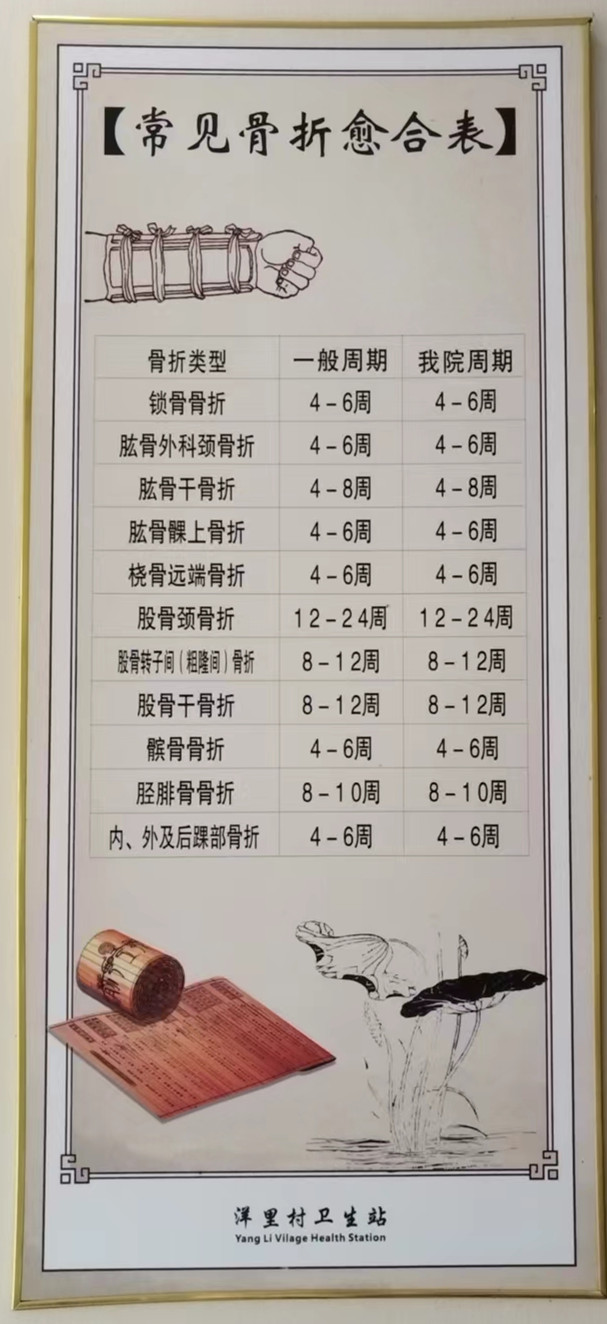 【常见骨折愈合表】
骨折类型 一般周期 我院周期
锁骨骨折 4-6周 4-6周
肱骨外科颈骨折 4-6周 4-6周
肱骨干骨折 4-8周 4-8周
肱骨髁上骨折 4-6周 4-6周
桡骨远端骨折 4-6周 4-6周
股骨颈骨折 12-24周 12-24周
股骨转子间（粗隆间）骨折 8-12周 8-12周
股骨干骨折 8-12周 8-12周
髌骨骨折 4-6周 4-6周
胫腓骨骨折 8-10周 8-10周
内、外及后踝部骨折 4-6周 4-6周
洋里村卫生站
Yang Li Vilage Health Station